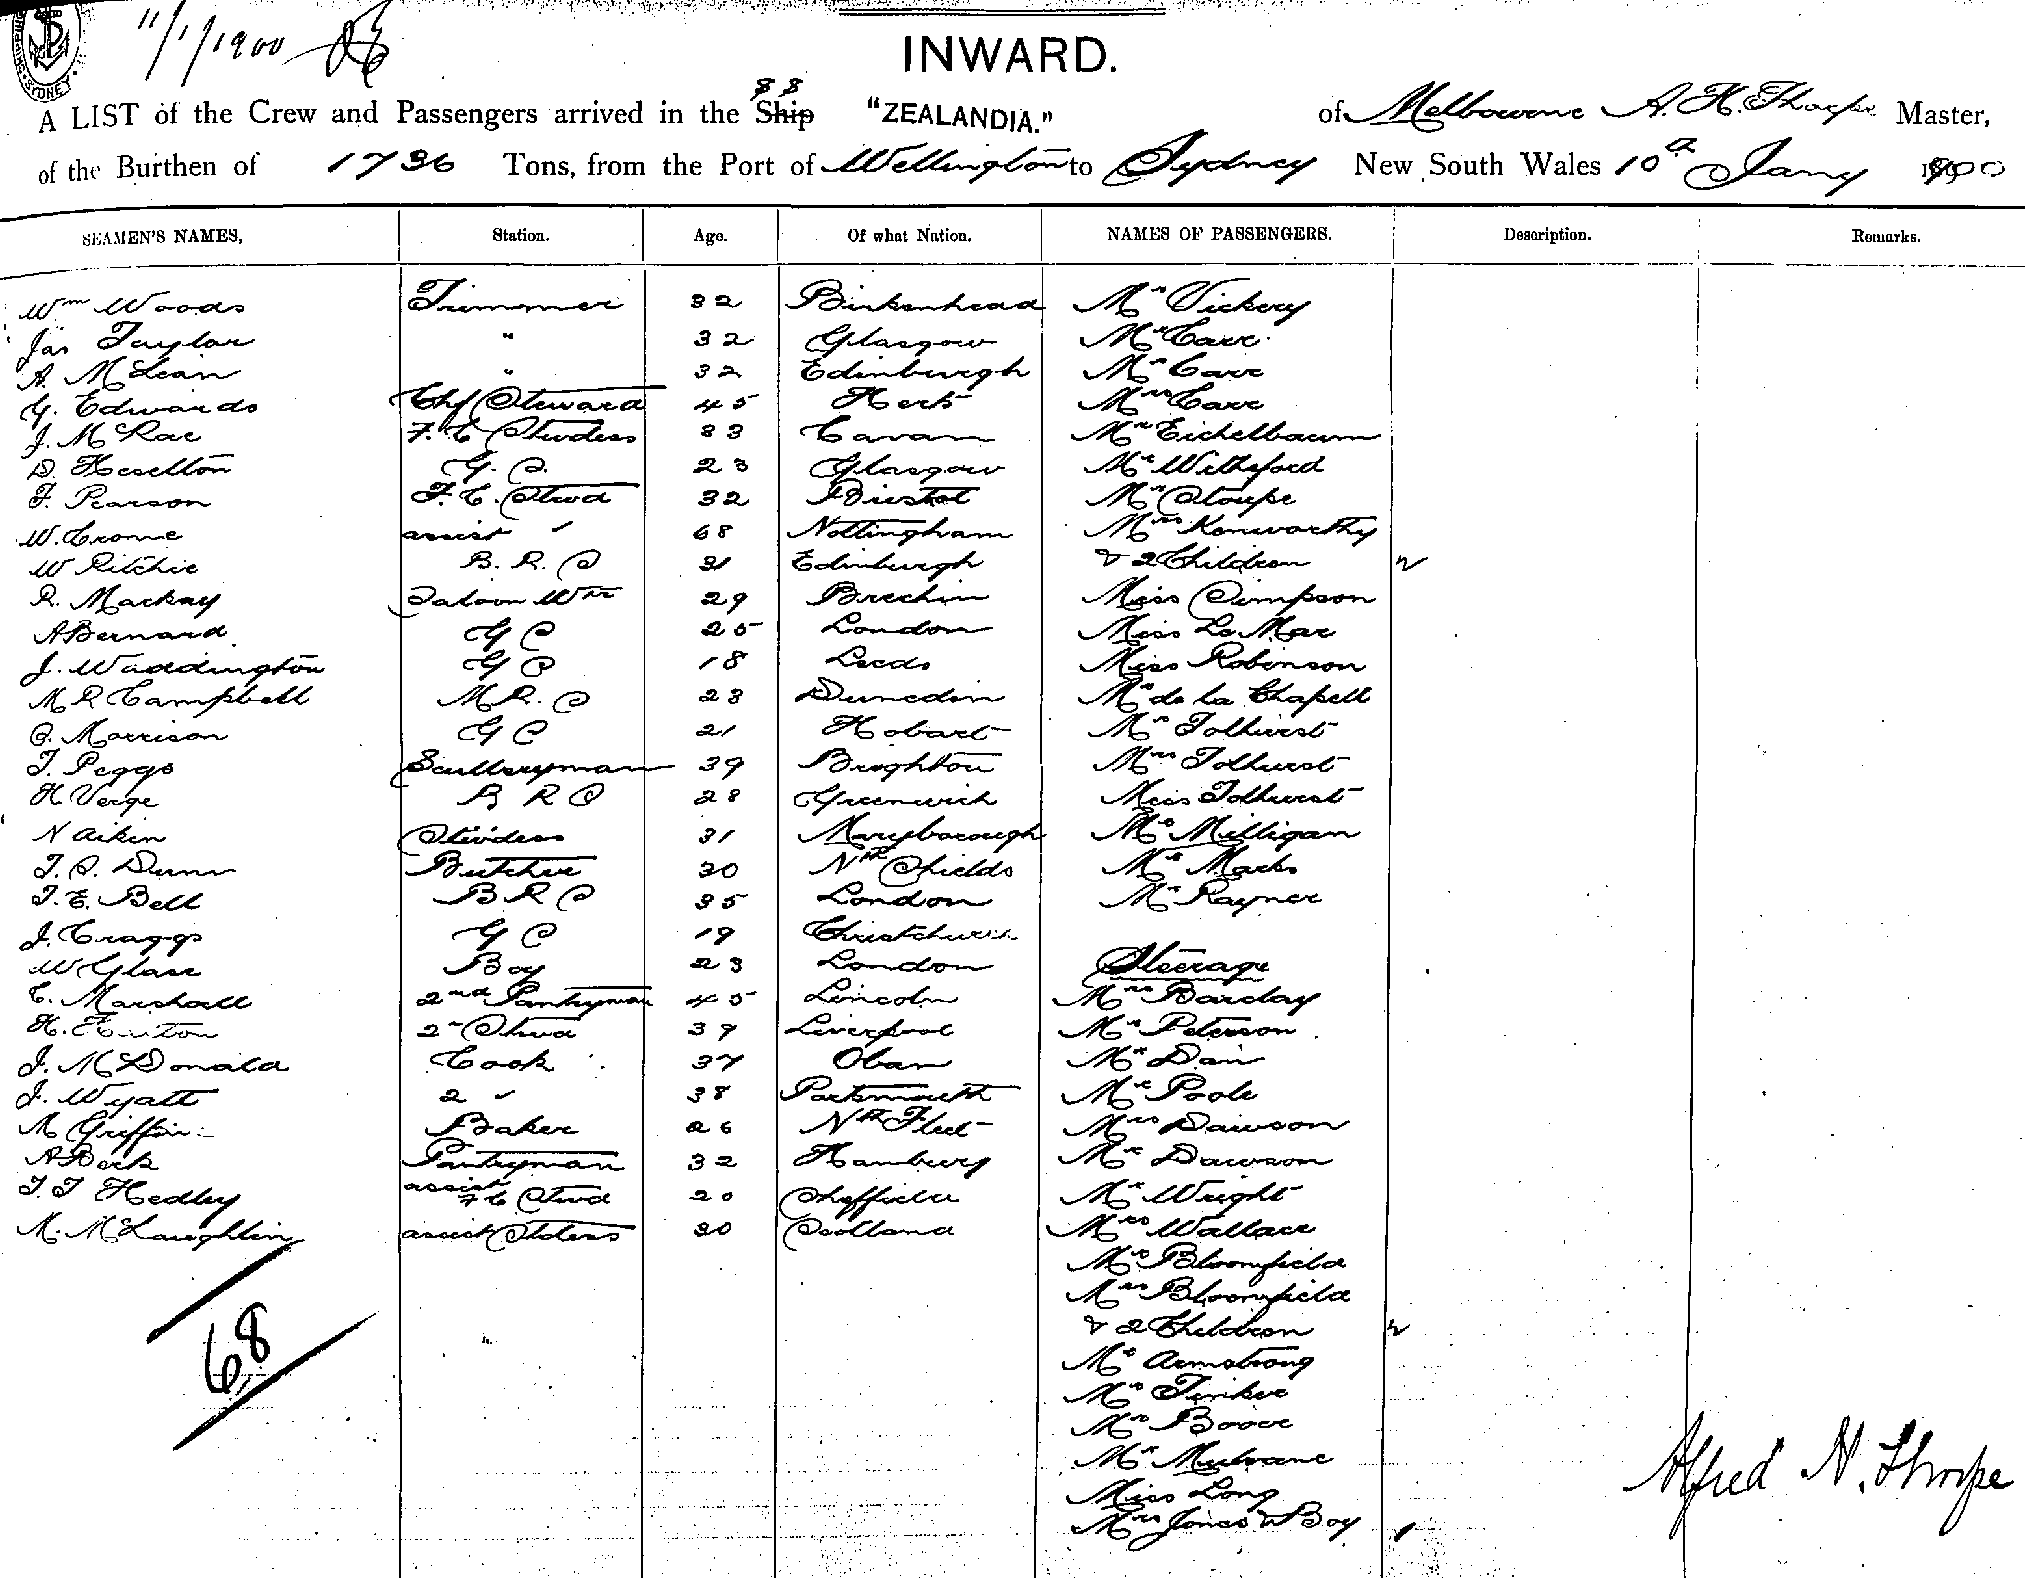 SYDNEY
11/1/1900
INWARD.
A LIST of the Crew and Passengers arrived in the Ship SS "ZEALANDIA." of Melbourne A. H. Thorpe Master,
of the Burthen of 1736 Tons, from the Port of Wellington to Sydney New South Wales 10th Jany 1900
SEAMEN'S NAMES, Station. Age. Of what Nation. NAMES OF PASSENGERS. Description. Remarks.
Wm Woods Trimmer 32 Birkenhead Mr Vickery
Jas Taylor " 32 Glasgow Mr Carr
A. McLean " 32 Edinburgh Mr Carr
G. Edwards Chf Steward 45 Herts Mrs Carr
J. McRae F. C Stwdess 33 Cavan Mr Eichelbaum
D. Heselton G. S. 23 Glasgow Mr Witheford
F. Pearson F. C. Stwd 32 Bristol Mr Stoupe
W. Crome assist " 68 Nottingham Mrs Kenworthy
W Ritchie B. R. S 31 Edinburgh & 2 Children 2
R. Mackay Saloon Wtr 29 Brechin Miss Simpson
A Bernard G S 25 London Miss La Mar
J. Waddington G S 18 Leeds Miss Robinson
M R Campbell M R. S 23 Dunedin Mr de la Chapell
S. Morrison G S 21 Hobart Mr Tolhurst
T. Peggs Sculleryman 39 Brighton Mrs Tolhurst
H Verge B R S 28 Greenwich Miss Tolhurst
N Aiken Stwdess 31 Maryborough Mr Milligan
T. S. Dunn Butcher 30 Nth Shields Mr Marks
T. E. Bell B R S 35 London Mr Rayner
J. Craggs G S 19 Christchurch
W Glase Boy 23 London Steerage
C. Marshall 2nd Pantryman 45 Lincoln Mrs Barclay
H. 2nd Stwd 39 Liverpool Mr Peterson
J. McDonald Cook 37 Oban Mr Dain
J. Wyatt 2 " 38 Portsmouth Mr Poole
M Griffin Baker 26 Nth Fleet Mrs Dawson
A Beck Pantryman 32 Hamburg Mr Dawson
T. T Hedley assist F C Stwd 20 Sheffield Mr Wright
M. McLaughlin assist Stdess 30 Scotland Mrs Wallace
Mr Bloomfield
Mrs Bloomfield
& 2 Children 2
Mr Armstrong
Mr Tinker
Mr
Mr Mulvane
Miss Long
Mrs Jones & Boy 1
68
Alfred H. Thorpe